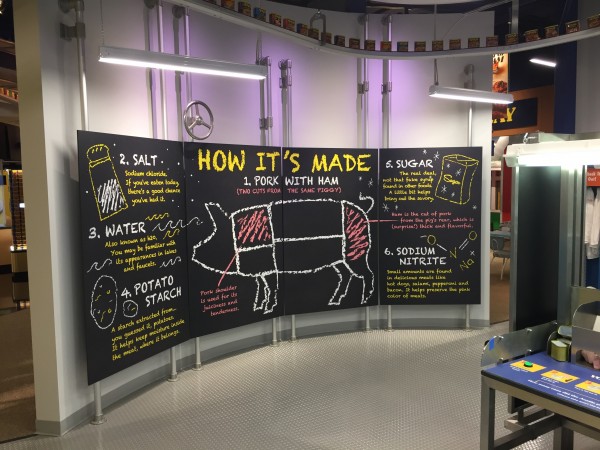 HOW IT'S MADE
1. PORK WITH HAM
(TWO CUTS FROM THE SAME PIGGY)
Pork shoulder
is used for its
juiciness and
tenderness.
Ham is the cut of pork
from the pig's rear, which is
(surprise!) thick and flavorful.
2. SALT
Sodium chloride.
If you've eaten today,
there's a good chance
you've had it.
3. WATER
Also known as H2O.
You may be familiar with
its appearances in lakes
and faucets.
4. POTATO
STARCH
A starch extracted from,
you guessed it, potatoes.
It helps keep moisture inside
the meat, where it belongs.
5. SUGAR
The real deal,
not that fake syrup
found in other foods.
A little bit helps
bring out the savory.
Sugar
6. SODIUM
NITRITE
Small amounts are found
in delicious meats like
hot dogs, salami, pepperoni and
bacon. It helps preserve the pink
color of meats.
O
N
O
Na